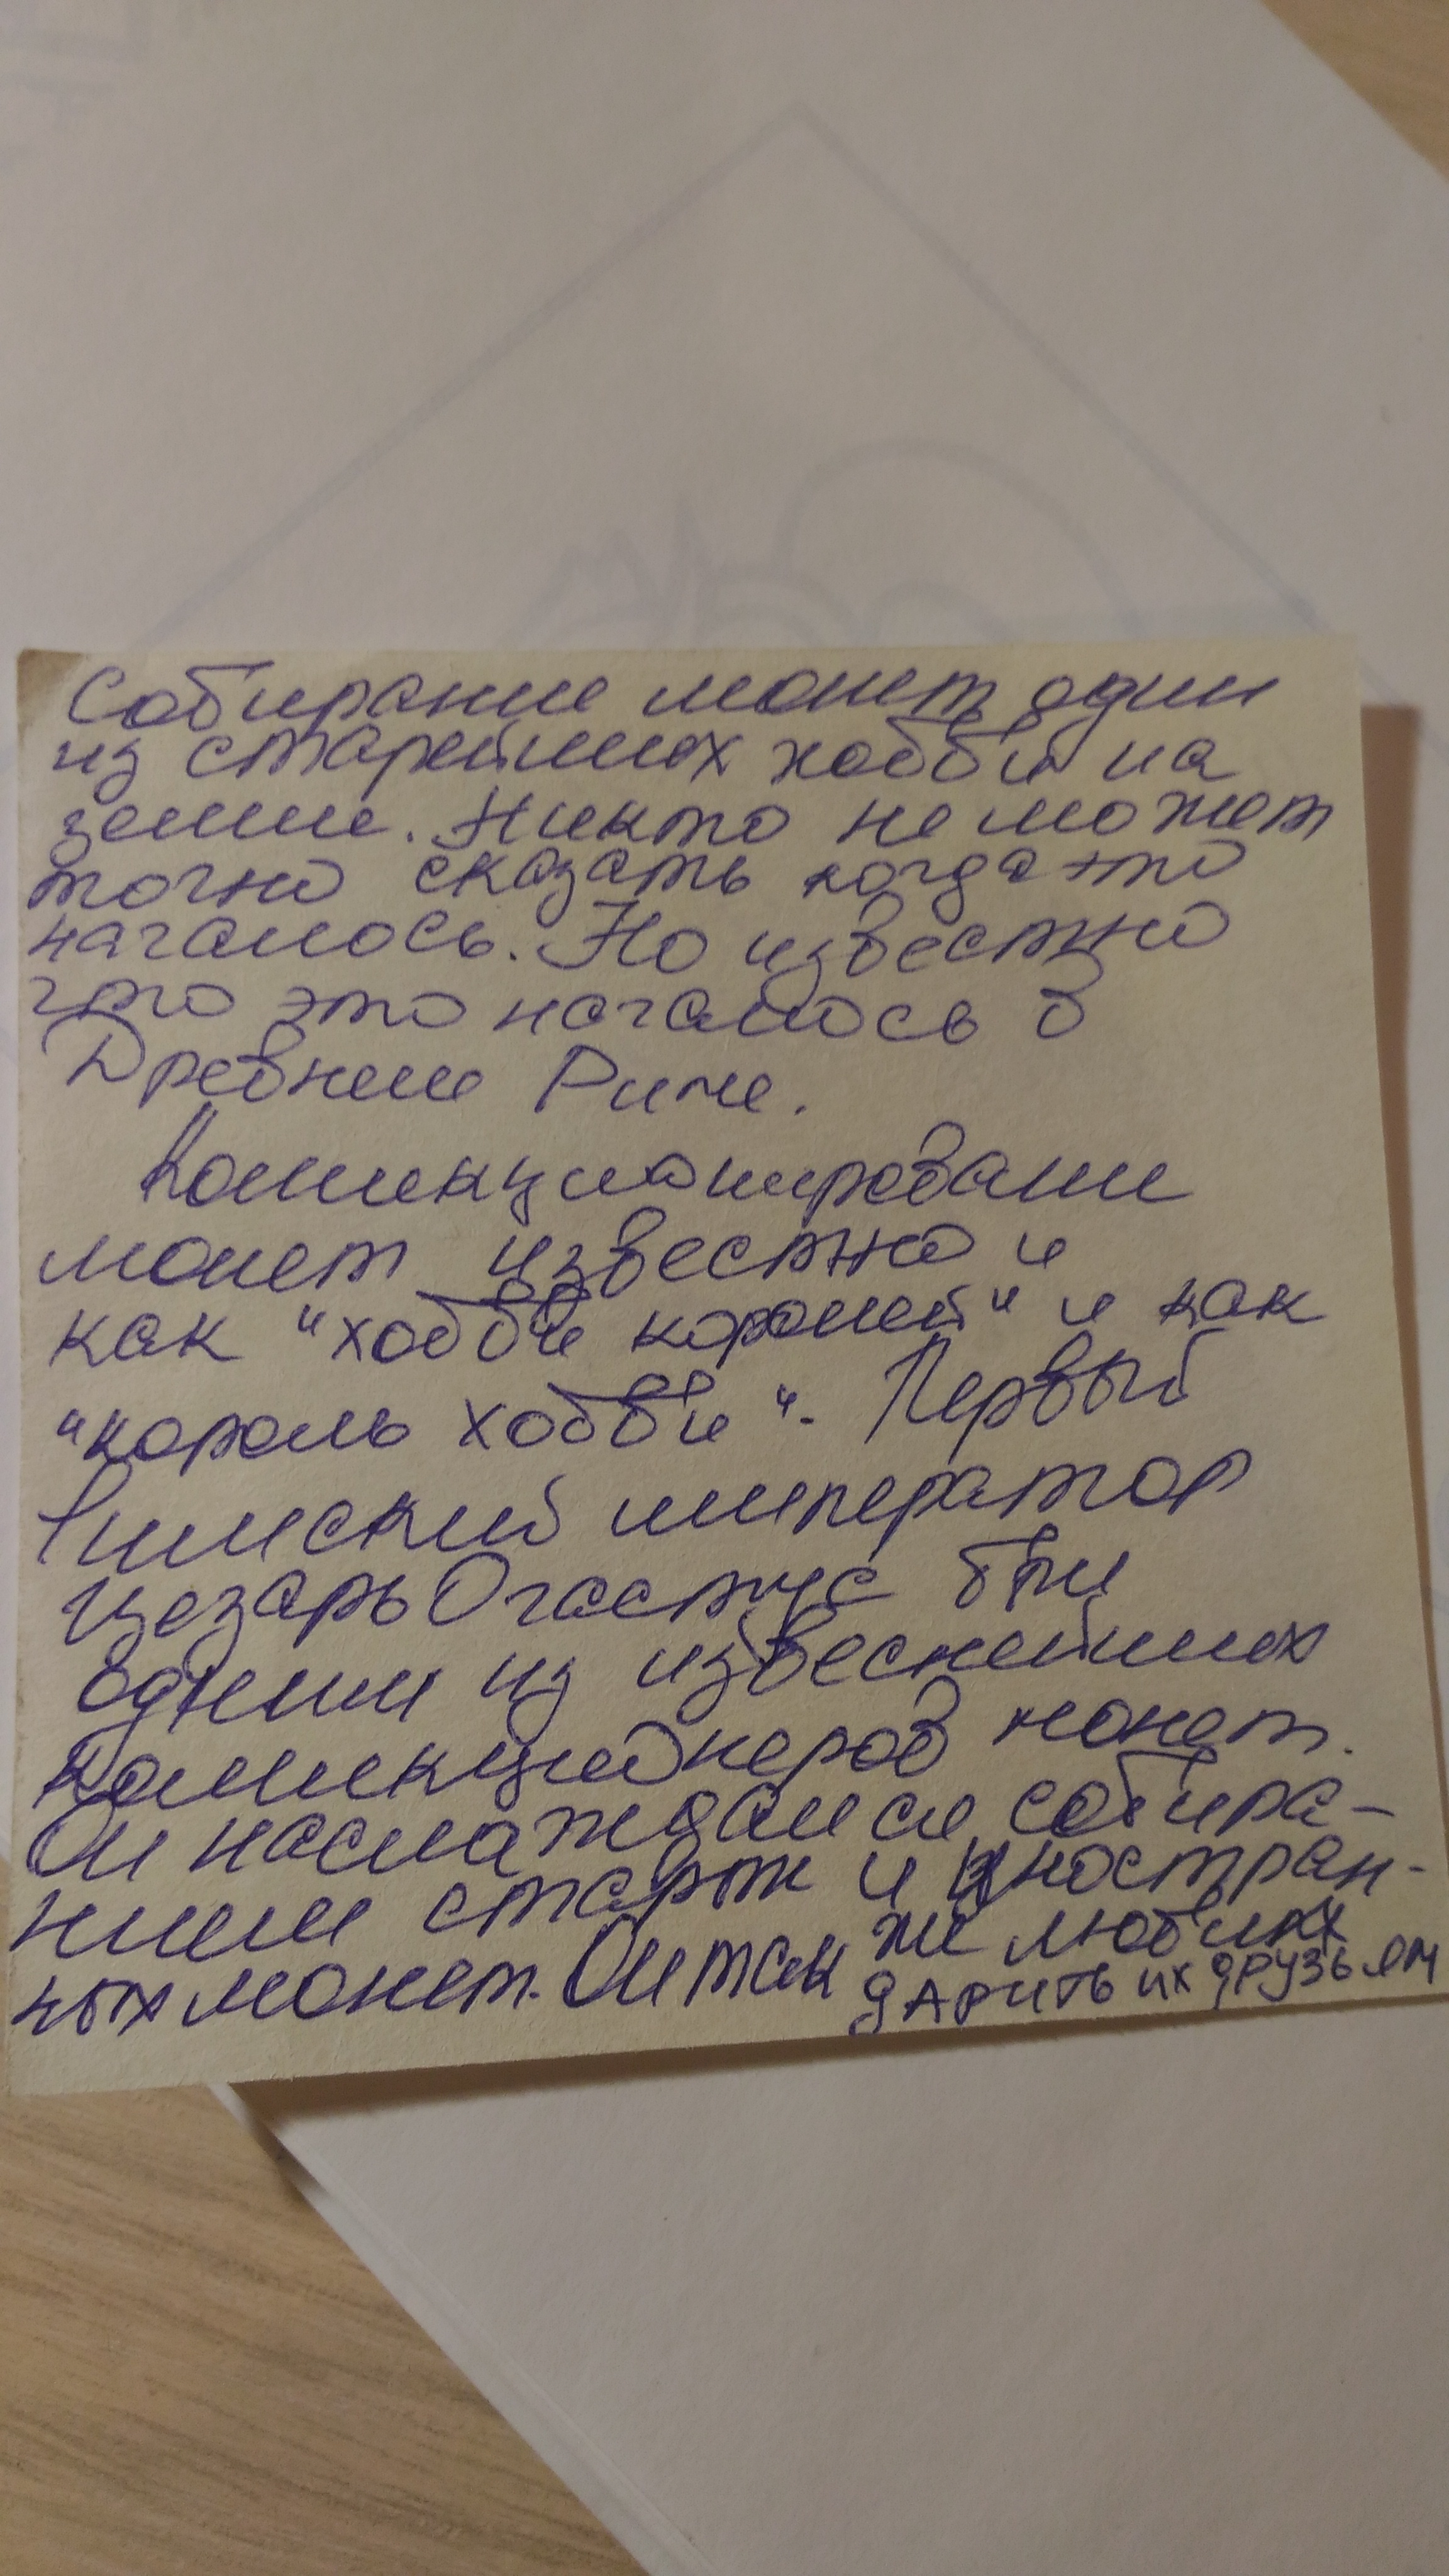 Собирание монет один
из старейших хобби на
земле. Никто не может
точно сказать когда это
началось. Но известно
что это началось в
Древнем Риме.
Коллекционировани
монет известно и
как "хобби королей" и как
"король хобби". Первый
Римский император
Цезарь Огастус был
одним из извеснейших
коллекцийонеров монет.
Он наслаждался собира-
нием старых и иностран-
ных монет. Он так же любил
дарить их друзьям